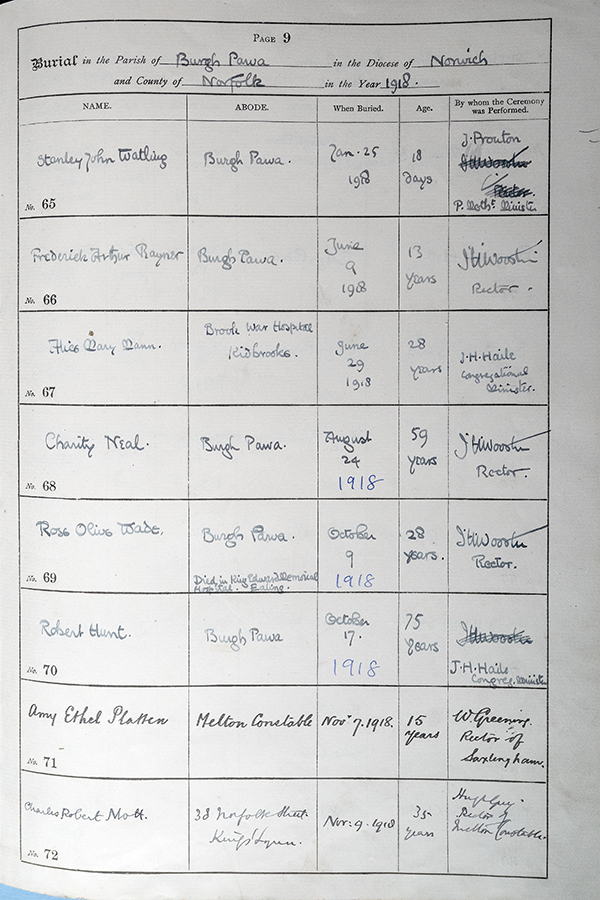 PAGE 9
Burial in the Parish of Burgh Parva in the Diocese of Norwich
and County of Norfolk in the Year 1918.
NAME. ABODE. When Buried. Age. By whom the Ceremony was Performed.
Stanley John Watling
No. 65
Burgh Parva.
Jan. 25
1918
18
days
J. Prouton
P. Meth^t. Minister
Frederick Arthur Rayner
No. 66
Burgh Parva.
June
9
1918
13
years
Rector.
Alice Mary Mann.
No. 67
Brook War Hospital
Kidbrooke.
June
29
1918
28
years
J. H. Haile
Congregational
Minister.
Charity Neal.
No. 68
Burgh Parva.
August
24
1918
59
years
Rector.
Rose Olive Wade.
No. 69
Burgh Parva.
Died in King Edward Memorial
Hospital. Ealing.
October
9
1918
28
years.
Rector.
Robert Hunt.
No. 70
Burgh Parva
October
17.
1918
75
years
J. H. Haile
Congreg. Minister
Amy Ethel Platten
No. 71
Melton Constable
Nov^r 7. 1918.
15
years
W. Greening.
Rector of
Saxlingham.
Charles Robert Mott.
No. 72
38 Norfolk Street
King's Lynn.
Nov. 9. 1918
35
years
Rector of
Melton Constable.